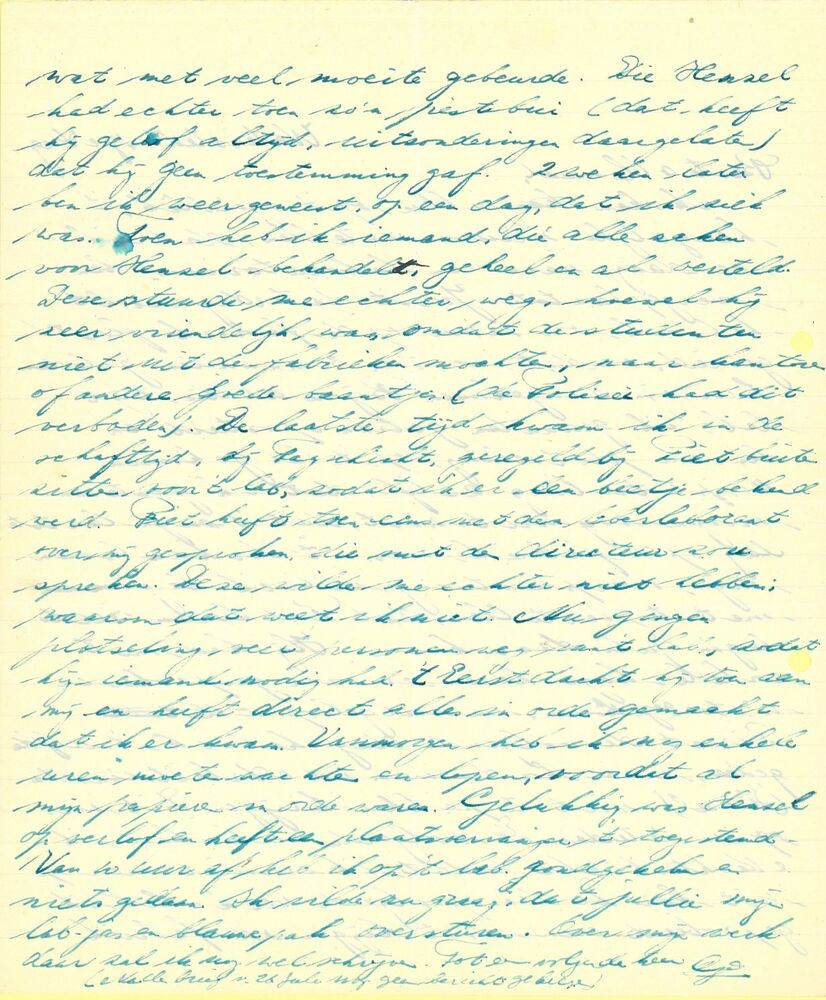 wat met veel moeite gebeurde. Die Hensel
had echter toen zo'n pestbui (dat heeft
hij geloof altijd uitzonderingen daargelaten)
dat hij geen toestemming gaf. 2 weken later
ben ik weer geweest, op een dag, dat ik ziek
was. Toen heb ik iemand, die alle zaken
voor Hensel behandelt, geheel en al verteld.
Deze stuurde me echter weg, hoewel hij
zeer vriendelijk was, omdat de studenten
niet uit de fabrieken mochten, naar kantoor
of andere goede baantjes. (de Polizei had dit
verboden). De laatste tijd kwam ik in de
schafttijd, bij Tagschicht, geregeld bij Piet buiten
zitten voor 't lab, zodat ik er een beetje bekend
werd. Piet heeft toen eens met den overlaborant
over mij gesproken, die met de directeur zou
spreken. Deze wilde me echter niet hebben;
waarom dat weet ik niet. Nu gingen
plotseling veel personen weg van 't lab, zodat
hij iemand nodig had. 't Eerst dacht hij toen aan
mij en heeft direct alles in orde gemaakt
dat ik er kwam. Vanmorgen heb ik nog enkele
uren moeten wachten en lopen, voordat al
mijn papieren in orde waren. Gelukkig was Hensel
op verlof en heeft een plaatsvervanger 't toegestaan.
Van 10 uur af heb ik op 't lab. rondgekeken en
niets gedaan. Ik wilde nu graag, dat jullie mijn
lab-jas en blauwe pak oversturen. Over mijn werk
daar zal ik nog wel schrijven. Tot een volgende keer
brief v. 26 Juli nog geen bericht gekregen)